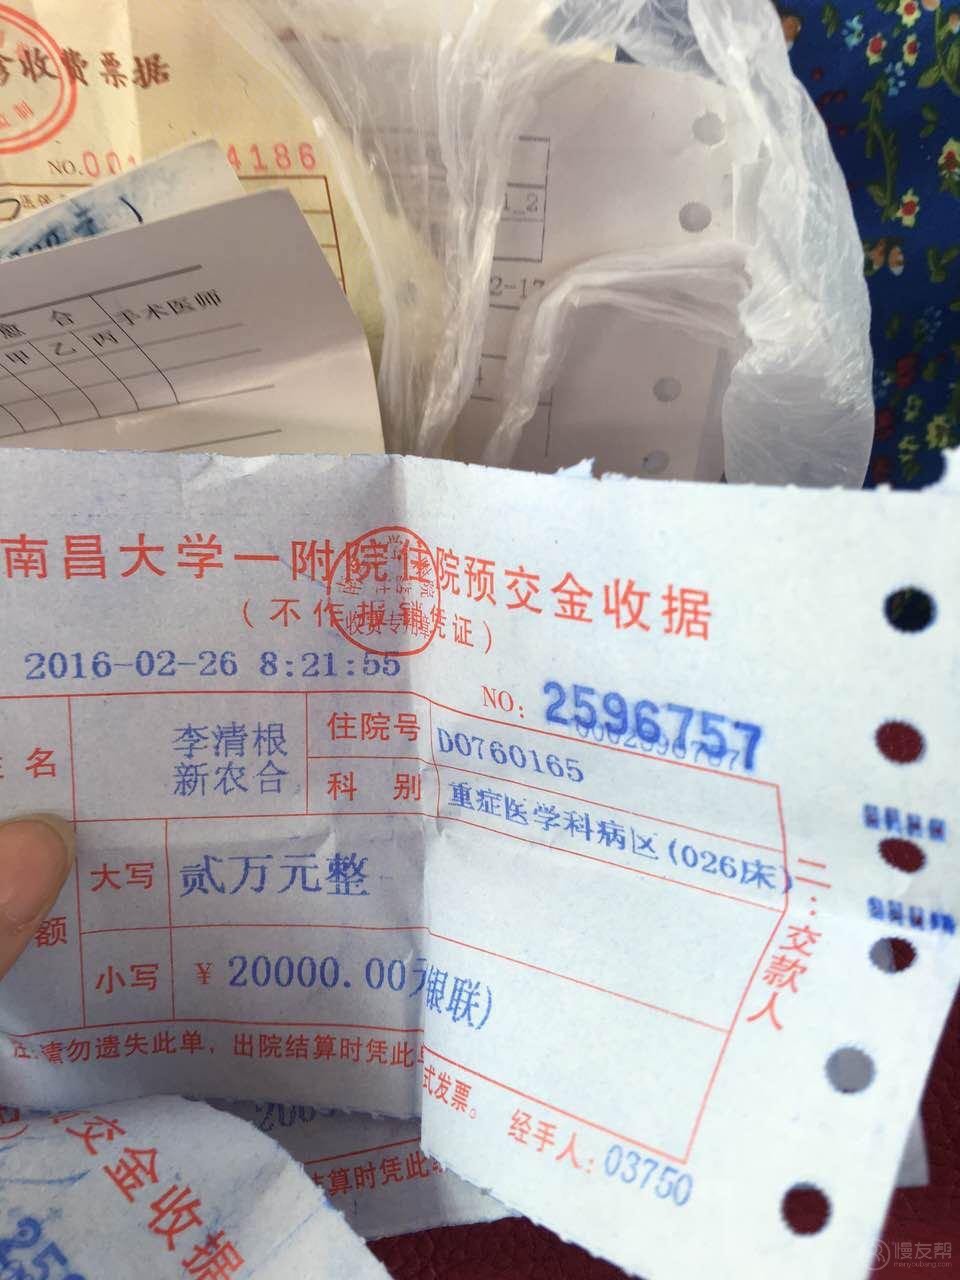 收费票据
制
NO.001
4186
1_2
2-17
愈 合
手术医师
甲 乙 丙
南昌大学一附院住院预交金收据
(不作报销凭证)
收费专用章
2016-02-26 8:21:55
NO: 2596757
名
李清根
新农合
住院号
D0760165
科 别
重症医学科病区(026床)
额
大写
贰万元整
小写
¥ 20000.00元(银联)
二:交款人
注:请勿遗失此单,出院结算时凭此
式发票。
经手人:03750
200
结算时凭此
交金收据
25
慢友帮
manyoubang.com